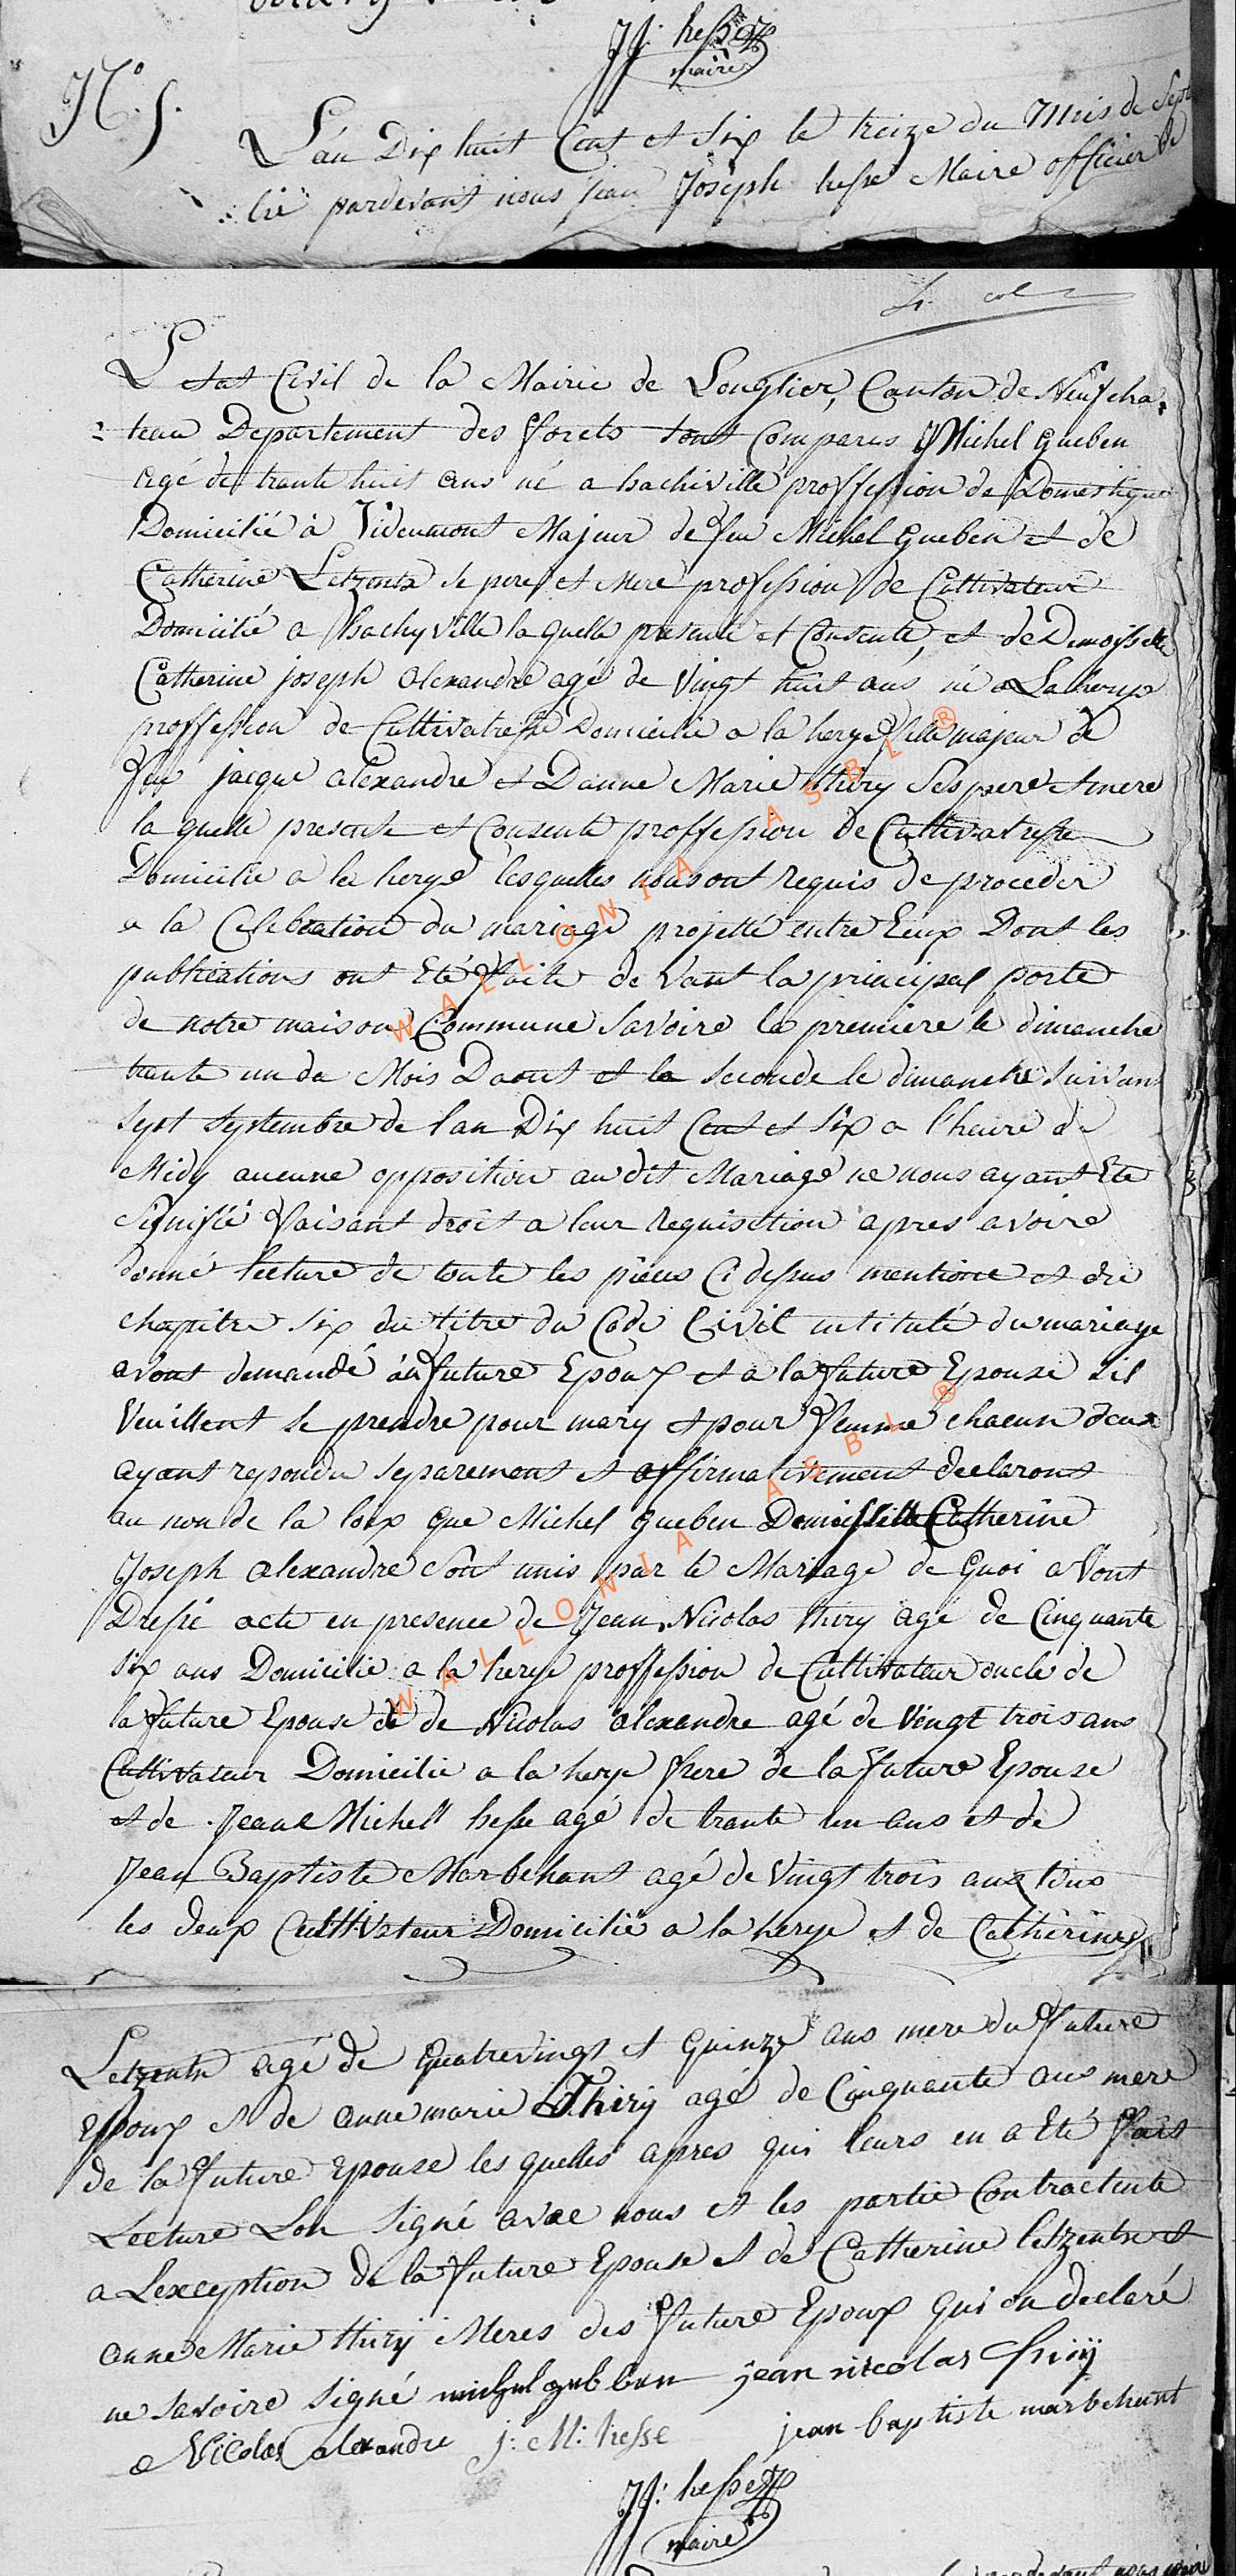 J J: hesse
maire
N.° 5.
L'an Dix huit Cent et Six le treize du Mois de Sept
bre pardevant nous jean Joseph hesse Maire officier de
L'etat Civil de la Mairie de Longlier, Canton de Neufcha-
teau Departement des forets sont Comparus Michel gueben
agé de trante huit ans né a hachiville proffession de Domestique
Domicilié à Videumont Majeur de feu Michel gueben et de
Catherine Letzentn se pere et Mere profession de Cultivateur
Domicilié a hachyville la quelle presente et Consente, et de Demoisselle
Catherine joseph alexandre agé de Vingt huit ans né a La herye
proffession de Cultivatresse Domicilié a la herye fille majeur de
feu jacque alexandre et Danne Marie thiry Ses pere et mere
la quelle presente et Consente proffession de Cultivatresse
Domicilié a la herye lesquelles nous ont requis de proceder
a la Celebration du mariage projetté entre Eux Dont les
publications ont Eté faite de vant la principal porte
de notre maison Commune Savoire la premiere le dimanche
trante un du Mois Daout et la seconde le dimanche Suivant
sept septembre de l'an Dix huit Cent et Six a l'heure de
Midy aucune opposition au dit Mariage ne nous ayant Eté
Signifié faisant droit a leur requisition apres avoire
donné lecture de toute les pieces Ci dessus mentioné et du
chapitre six du titre du Code Civil intitulé du mariage
avont demandé au future Epoux et a la future Epouse s'il
Veuillent se prendre pour mary et pour femme chacun deux
ayant repondu separement et affirmativement declarons
au nom de la loix que Michel gueben Demoisselle Catherine
Joseph alexandre sont unis par le Mariage de quoi avont
Dressé acte en presence de Jean Nicolas thiry agé de Cinquante
six ans Domicilié a la herye proffession de Cultivateur oncle de
la future Epouse de de Nicolas alexandre agé de Vingt trois ans
Cultivateur Domicilié a la herye frere de la future Epouse
et de Jean Michell hesse agé de trante un ans et de
Jean Baptiste Marbehant agé de Vingt trois ans tous
les deux Cultivateur Domicilié a la herye et de Catherine
Letzentn agé de quatrevingt et quinze ans mere du future
Epoux et de anne marie Thiry agé de Cinquante ans mere
de la future Epouse les quelles apres qui leurs en a Eté fait
Lecture Lon Signé avec nous et les partie Contractente
a Lexception de la future Epouse et de Catherine letzentn et
anne Marie thiry Meres des future Epoux qui on declaré
ne savoire Signé michel guebben jean nicolas thiry
Nicolas alexandre J: M: hesse jean baptiste marbehant
J J: hesse
maire
WALLONIA ASBL ®
WALLONIA ASBL ®